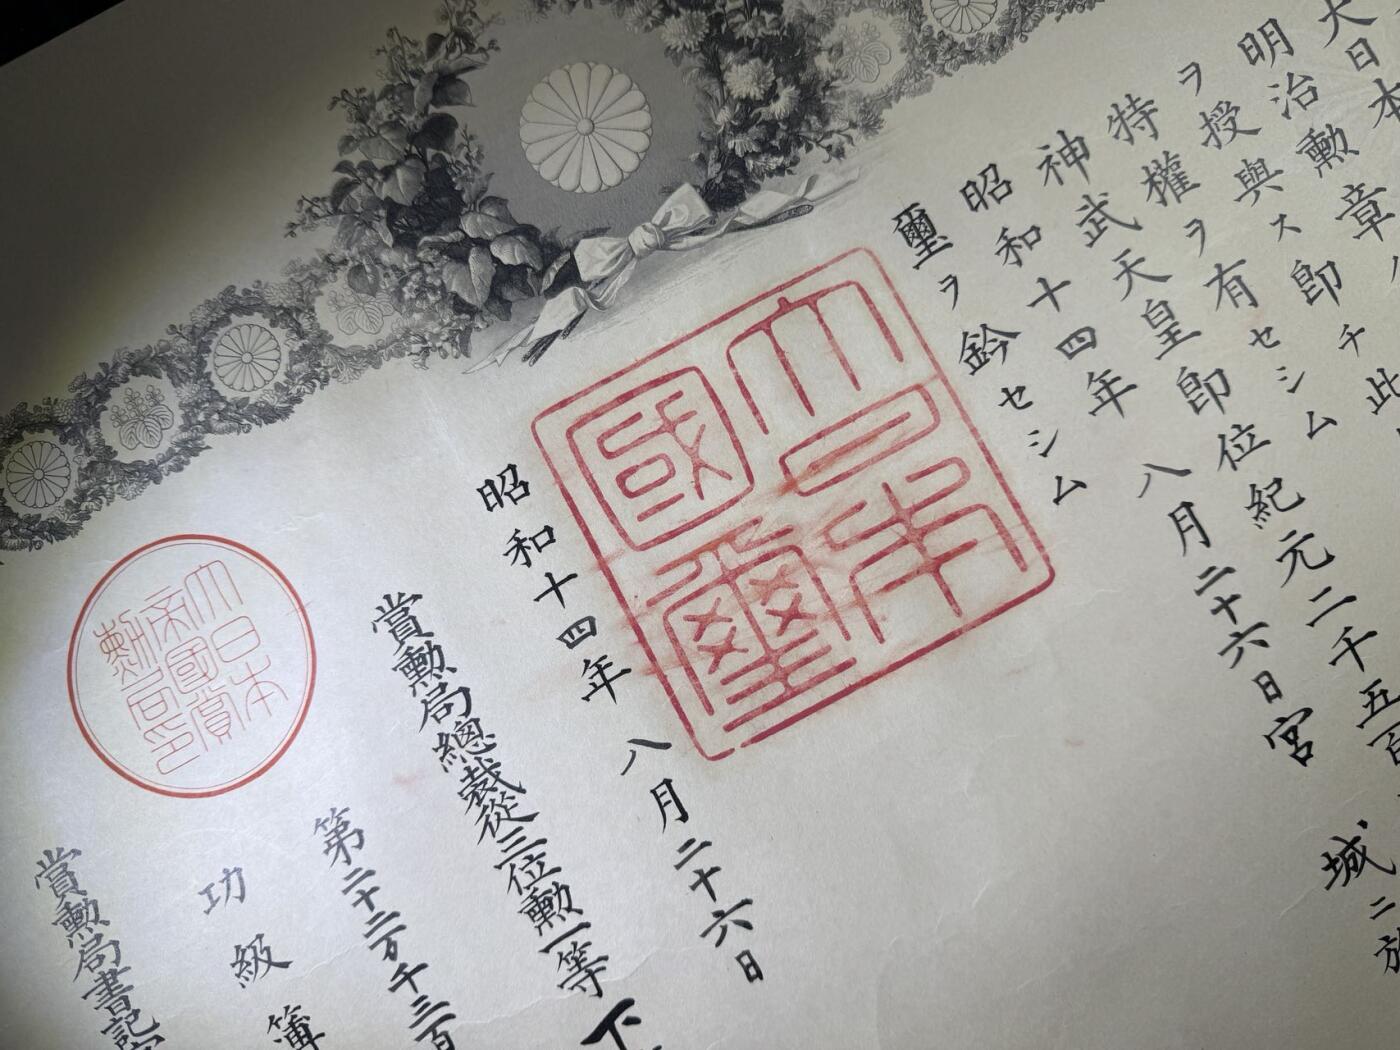 大日本
明治勲章
ヲ授與ス即チ此
特權ヲ有セシム
神武天皇即位紀元二千五百
昭和十四年八月二十六日宮城ニ於
璽ヲ鈐セシム
大日本國璽
昭和十四年八月二十六日
賞勲局總裁從三位勲一等下
第二十二万千三百
功級簿
大日本帝國賞勲局印
賞勲局書記官